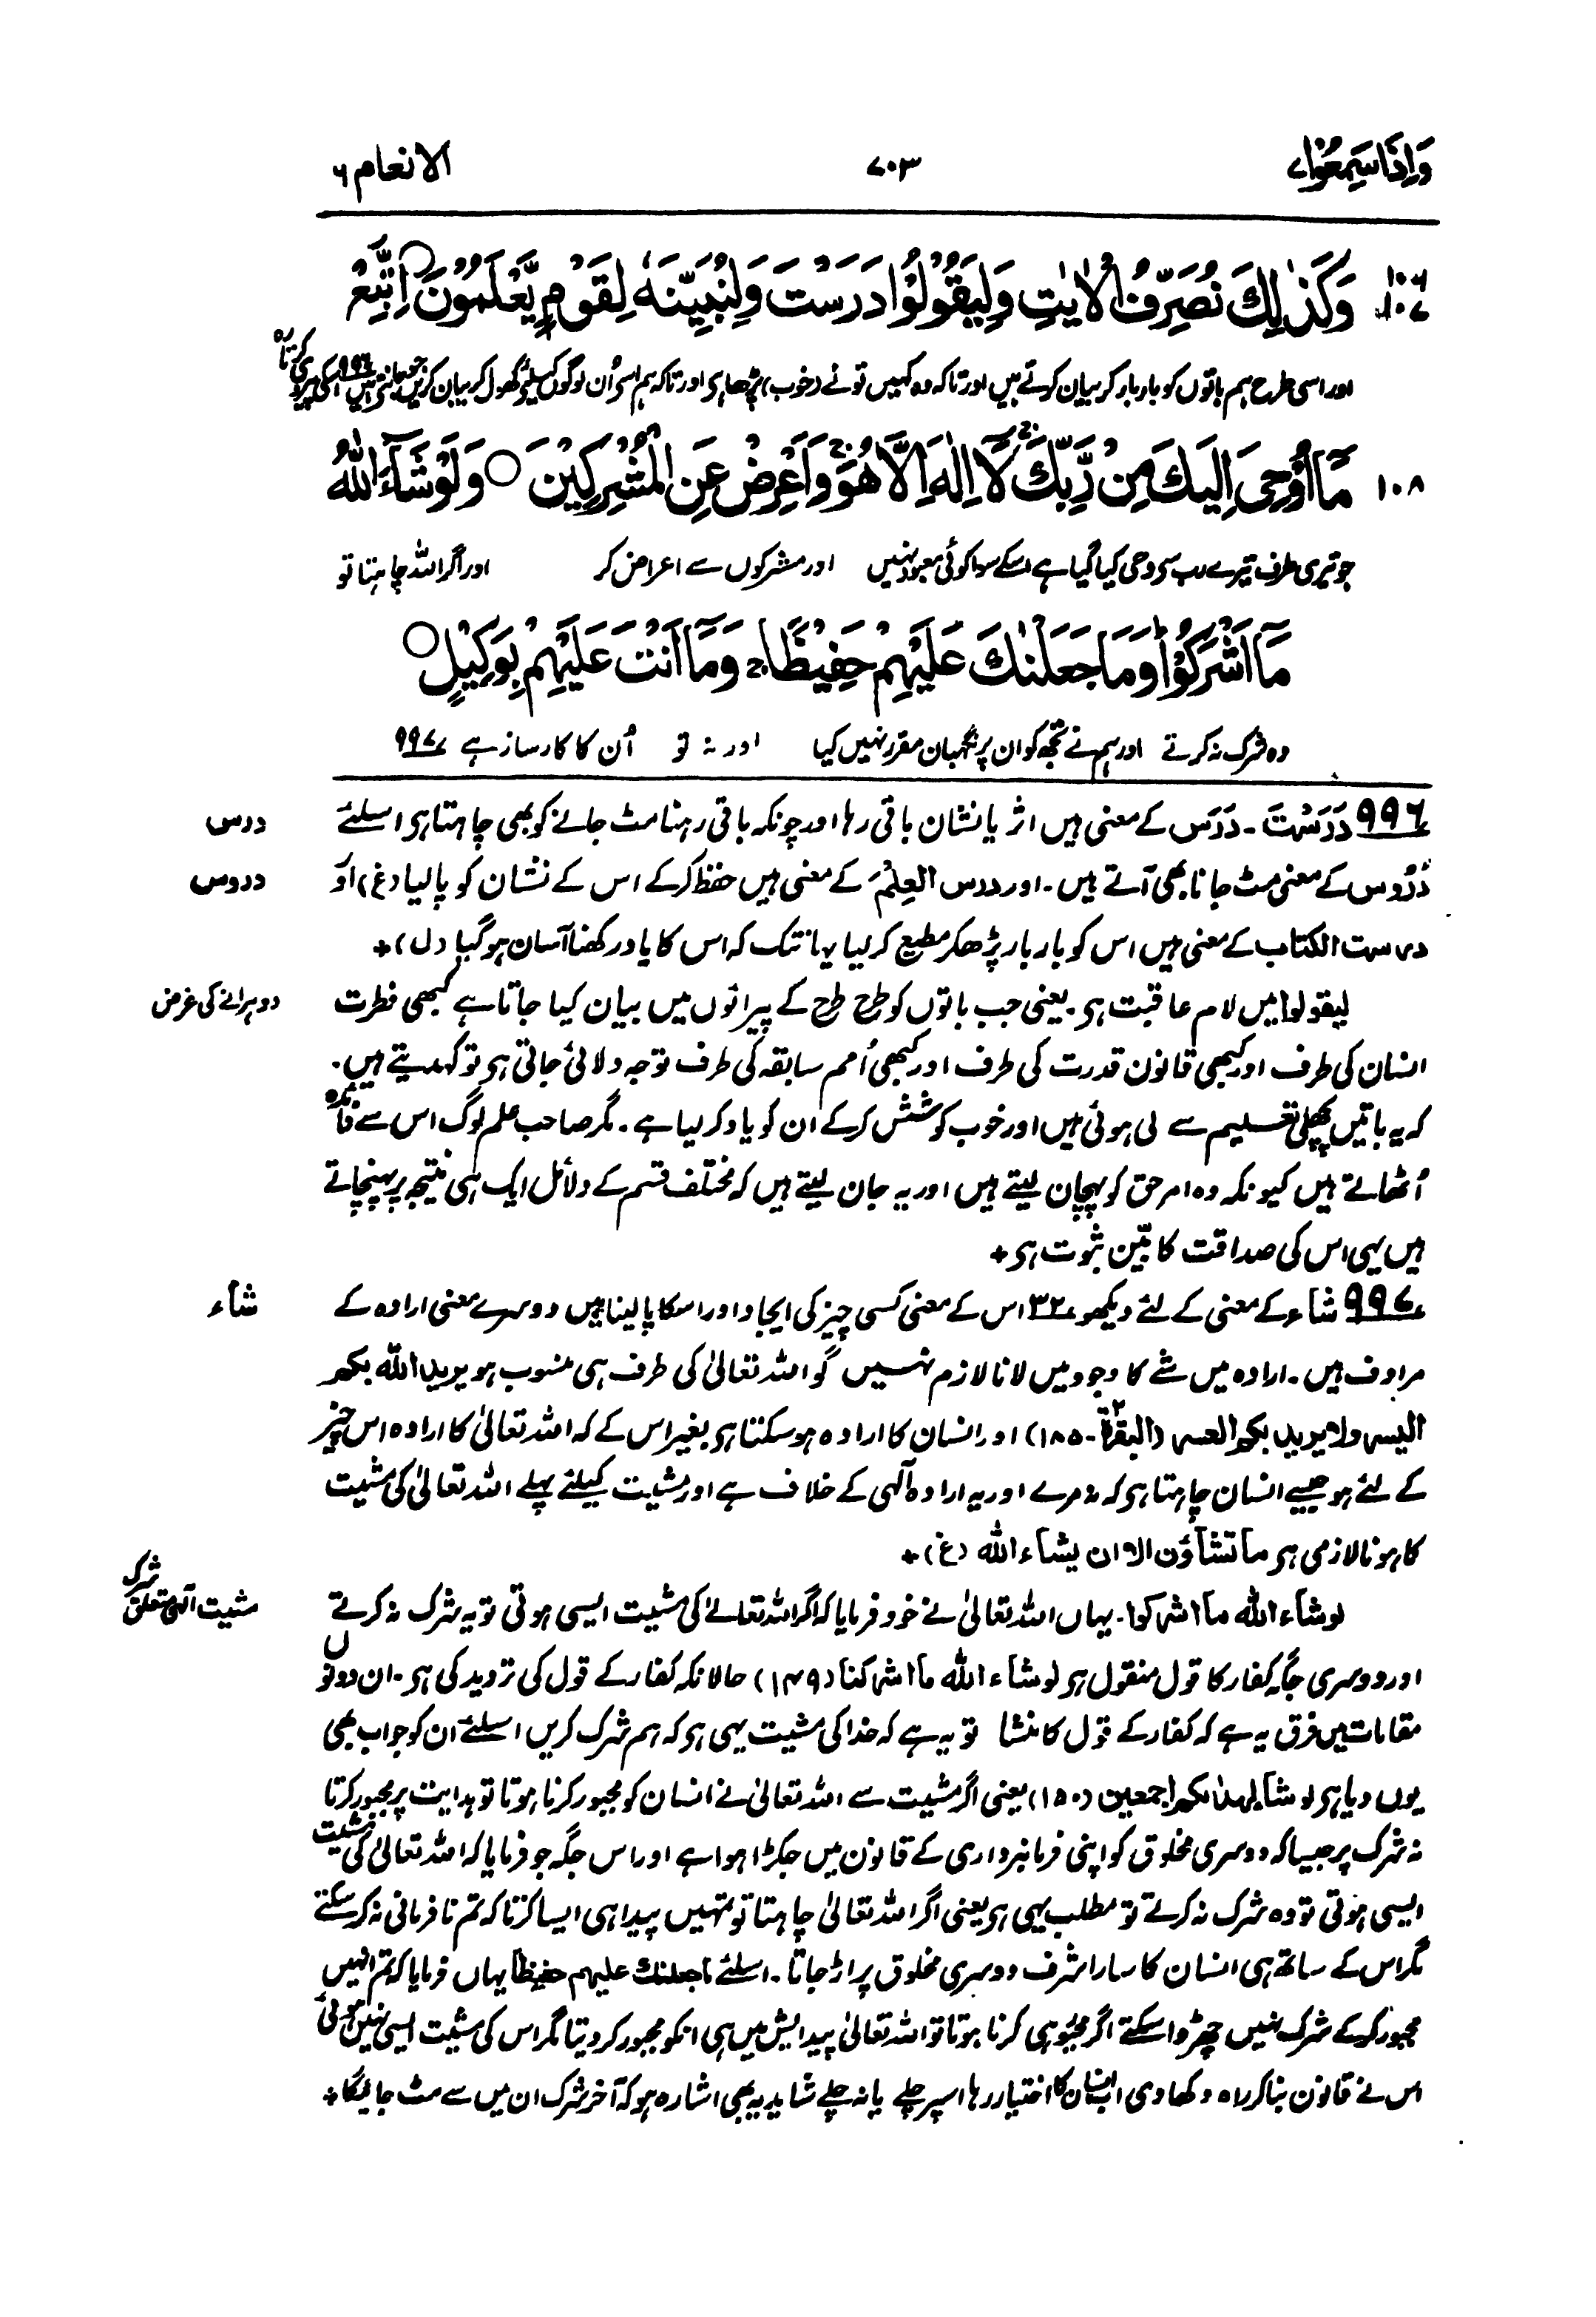 وَاِذَا سَمِعُوْا ۷
۷۰۳
الانعام ۶
۱۰۶
۱۰۷
وَكَذٰلِكَ نُصَرِّفُ الْاٰيٰتِ وَلِيَقُوْلُوْا دَرَسْتَ وَلِنُبَيِّنَهٗ لِقَوْمٍ يَّعْلَمُوْنَ ○ اِتَّبِعْ
اور اسی طرح ہم باتوں کو بار بار کر بیان کرتے ہیں اور تاکہ وہ کہیں تو نے (خوب) پڑھا ہی اور تاکہ ہم اسے اُن لوگوں کیلئے کھول کر بیان کریں جو جانتے ہیں ۹۹۶ اسکی پیروی کرتا رہ
۱۰۸
مَاۤ اُوْحِیَ اِلَيْكَ مِنْ رَّبِّكَ ۚ لَاۤ اِلٰهَ اِلَّا هُوَ ۚ وَاَعْرِضْ عَنِ الْمُشْرِكِيْنَ ○ وَلَوْ شَآءَ اللّٰهُ
جو تیری طرف تیرے رب سے وحی کیا گیا ہے اسکے سوا کوئی معبود نہیں اور مشرکوں سے اعراض کر اور اگر اللہ چاہتا تو
مَاۤ اَشْرَكُوْا ؕ وَمَا جَعَلْنٰكَ عَلَيْهِمْ حَفِيْظًا ۚ وَمَاۤ اَنْتَ عَلَيْهِمْ بِوَكِيْلٍ ○
وہ شرک نہ کرتے اور ہم نے تجھ کو ان پر نگہبان مقرر نہیں کیا اور نہ تو اُن کا کارساز ہے ۹۹۷
۹۹۶ دَرَسْتَ ۔ دَرَسَ کے معنی ہیں اثر یا نشان باقی رہا اور چونکہ باقی رہنا مٹ جانے کو بھی چاہتا ہی اسلئے
درس
دُرُوس کے معنی مٹ جانا بھی آتے ہیں ۔ اور درس العِلْمَ کے معنی ہیں حفظ کرکے اس کے نشان کو پا لیا (غ) اور
دروس
درست الکتاب کے معنی ہیں اس کو بار بار پڑھکر مطیع کر لیا یہانتک کہ اس کا یاد رکھنا آسان ہو گیا (ل) +
لیقولوا میں لام عاقبت ہی ۔ یعنی جب باتوں کو طرح طرح کے پیرائوں میں بیان کیا جاتا ہے کبھی فطرت
دوہرانے کی غرض
انسان کی طرف اور کبھی قانون قدرت کی طرف اور کبھی اُمم سابقہ کی طرف توجہ دلائی جاتی ہی تو کہدیتے ہیں ۔
کہ یہ باتیں پچھلی تعلیم سے لی ہوئی ہیں اور خوب کوشش کرکے ان کو یاد کر لیا ہے ۔ مگر صاحب علم لوگ اس سے فائدہ
اُٹھاتے ہیں کیونکہ وہ امر حق کو پہچان لیتے ہیں اور یہ جان لیتے ہیں کہ مختلف قسم کے دلائل ایک ہی نتیجہ پر پہنچاتے
ہیں یہی اس کی صداقت کا بیّن ثبوت ہی +
۹۹۷ شاء کے معنی کے لئے دیکھو ۳۲ اس کے معنی کسی چیز کی ایجاد اور اسکا پا لینا ہیں دوسرے معنی ارادہ کے
شآء
مرادف ہیں ۔ ارادہ میں شے کا وجود میں لانا لازم نہیں گو اللہ تعالیٰ کی طرف ہی منسوب ہو یرید اللہ بکم
الیسر ولا یرید بکم العسر (البقرۃ۲ ۔ ۱۸۵) اور انسان کا ارادہ ہو سکتا ہی بغیر اس کے کہ اللہ تعالیٰ کا ارادہ اس چیز
کے لئے ہو جیسے انسان چاہتا ہی کہ نہ مرے اور یہ ارادہ الٰہی کے خلاف ہے اور مشیت کیلئے پہلے اللہ تعالیٰ کی مشیت
کا ہونا لازمی ہی ما تشآؤن الا ان یشاء اللہ (غ) +
لو شآء اللہ ما اشرکوا ۔ یہاں اللہ تعالیٰ نے خود فرمایا کہ اگر اللہ تعالےٰ کی مشیت ایسی ہوتی تو یہ شرک نہ کرتے
مشیت الٰہی متعلق شرک
اور دوسری جگہ کفار کا قول منقول ہی لو شآء اللہ ما اشرکنا (۱۴۹) حالانکہ کفار کے قول کی تردید کی ہی ۔ ان دونوں
مقامات میں فرق یہ ہے کہ کفار کے قول کا منشا تو یہ ہے کہ خدا کی مشیت یہی ہی کہ ہم شرک کریں اسلئے ان کو جواب بھی
یوں دیا ہی لو شآء لھدٰىکم اجمعین (۱۵۰) یعنی اگر مشیت سے اللہ تعالیٰ نے انسان کو مجبور کرنا ہوتا تو ہدایت پر مجبور کرتا
نہ شرک پر جیسا کہ دوسری مخلوق کو اپنی فرمانبرداری کے قانون میں جکڑا ہوا ہے اور اس جگہ جو فرمایا کہ اللہ تعالیٰ کی مشیت
ایسی ہوتی تو وہ شرک نہ کرتے تو مطلب یہی ہی یعنی اگر اللہ تعالیٰ چاہتا تو تمہیں پیدا ہی ایسا کرتا کہ تم نافرمانی نہ کر سکتے
مگر اس کے ساتھ ہی انسان کا سارا شرف دوسری مخلوق پر اڑ جاتا ۔ اسلئے ماجعلنٰك علیہم حفیظا یہاں فرمایا کہ تم انہیں
مجبور کرکے شرک نہیں چھڑوا سکتے اگر مجبور ہی کرنا ہوتا تو اللہ تعالیٰ پیدایش میں ہی انکو مجبور کر دیتا مگر اس کی مشیت ایسی نہیں ہوئی
اس نے قانون بنا کر راہ دکھا دی اب انسان کا اختیار رہا اسپر چلے یا نہ چلے شاید یہ بھی اشارہ ہو کہ آخر شرک ان میں سے مٹ جائیگا +